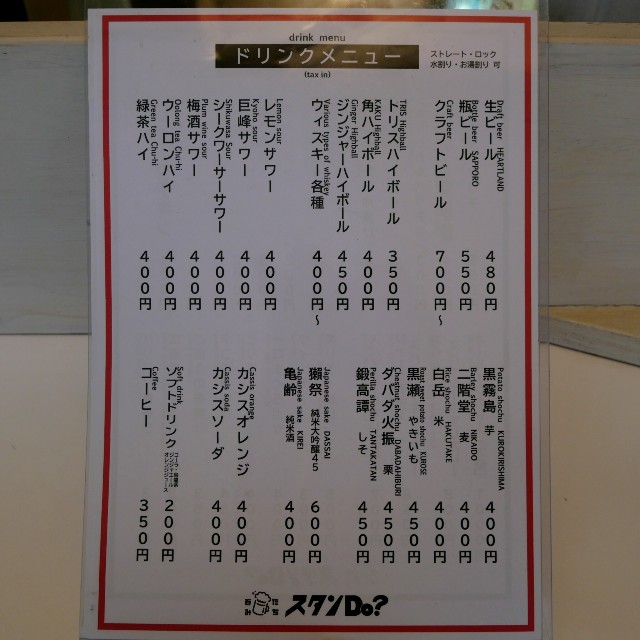 drink menu
ドリンクメニュー
(tax in)
ストレート・ロック
水割り・お湯割り 可
Draft beer HEARTLAND
生ビール 480円
Bottle beer SAPPORO
瓶ビール 550円
Craft beer
クラフトビール 700円～
TRIS Highball
トリスハイボール 350円
KAKU Highball
角ハイボール 400円
Ginger Highball
ジンジャーハイボール 450円
Various types of whiskey
ウィスキー各種 400円～
Lemon sour
レモンサワー 400円
Kyoho sour
巨峰サワー 400円
Shikuwasa Sour
シークワーサーサワー 400円
Plum wine sour
梅酒サワー 400円
Oolong tea Chu-hi
ウーロンハイ 400円
Green tea Chu-hi
緑茶ハイ 400円
Potato shochu KUROKIRISHIMA
黒霧島 芋 400円
Barley shochu NIKAIDO
二階堂 麦 400円
Rice shochu HAKUTAKE
白岳 米 400円
Roast sweet potato shochu KUROSE
黒瀬 やきいも 450円
Chestnut shochu DABADAHIBURI
ダバダ火振 栗 450円
Perilla shochu TANTAKATAN
鍛高譚 しそ 450円
Japanese sake DASSAI
獺祭 純米大吟醸45 600円
Japanese sake KIREI
亀齢 純米酒 400円
Cassis orange
カシスオレンジ 400円
Cassis soda
カシスソーダ 400円
Soft drink
ソフトドリンク 200円
コーラ・烏龍茶
ジンジャエール
オレンジジュース
Coffee
コーヒー 350円
立ち
呑み
スタンDo?